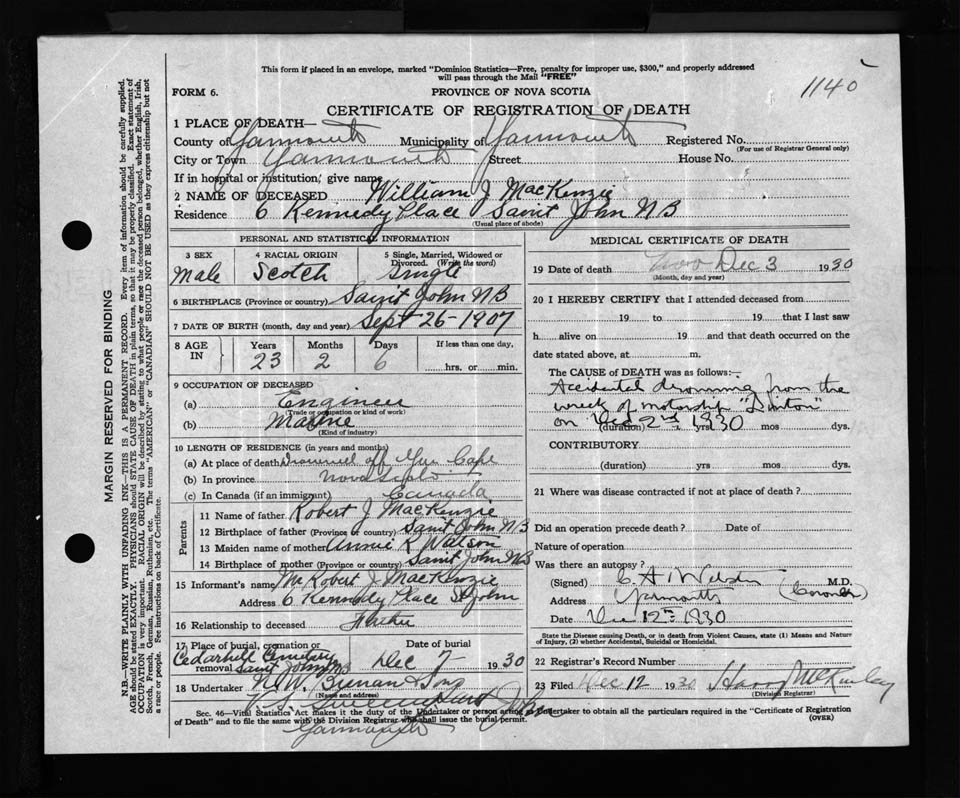 This form if placed in an envelope, marked "Dominion Statistics—Free, penalty for improper use, $300," and properly addressed
will pass through the Mail "FREE"
1140
FORM 6.
PROVINCE OF NOVA SCOTIA
CERTIFICATE OF REGISTRATION OF DEATH
1 PLACE OF DEATH—
County of Yarmouth Municipality of Yarmouth Registered No.
(For use of Registrar General only)
City or Town Yarmouth Street House No.
If in hospital or institution, give name
2 NAME OF DECEASED William J MacKenzie
Residence 6 Kennedy Place Saint John NB
(Usual place of abode)
PERSONAL AND STATISTICAL INFORMATION
3 SEX 4 RACIAL ORIGIN 5 Single, Married, Widowed or
Divorced. (Write the word)
Male Scotch Single
6 BIRTHPLACE (Province or country) Saint John NB
7 DATE OF BIRTH (month, day and year) Sept 26-1907
8 AGE IN Years Months Days If less than one day,
23 2 6 hrs. or min.
9 OCCUPATION OF DECEASED
(a) Engineer
(Trade or occupation or kind of work)
(b) Marine
(Kind of industry)
10 LENGTH OF RESIDENCE (in years and months)
(a) At place of death Drowned off Cape
(b) In province Nova Scotia
(c) In Canada (if an immigrant) Canada
Parents
11 Name of father Robert J MacKenzie
12 Birthplace of father (Province or country) Saint John NB
13 Maiden name of mother Annie K Watson
14 Birthplace of mother (Province or country) Saint John NB
15 Informant's name Mr Robert J MacKenzie
Address 6 Kennedy Place St John
16 Relationship to deceased Father
17 Place of burial, cremation or removal Date of burial
Cedarhill Cemetery Saint John NB Dec 7- 1930
18 Undertaker N.W. Brenan & Sons
(Name and address)
Saint John
Yarmouth
MEDICAL CERTIFICATE OF DEATH
19 Date of death Dec 3 1930
(Month, day and year)
20 I HEREBY CERTIFY that I attended deceased from
19 to 19 that I last saw
h alive on 19 and that death occurred on the
date stated above, at m.
The CAUSE of DEATH was as follows:
Accidental drowning from the
wreck of motorship
on Dec 2nd 1930
(duration) yrs mos dys.
CONTRIBUTORY
(duration) yrs mos dys.
21 Where was disease contracted if not at place of death?
Did an operation precede death? Date of
Nature of operation
Was there an autopsy?
(Signed) C A Webster M.D.
(Coroner)
Address Yarmouth
Date Dec 12th 1930
State the Disease causing Death, or in death from Violent Causes, state (1) Means and Nature
of Injury, (2) whether Accidental, Suicidal or Homicidal.
22 Registrar's Record Number
23 Filed Dec 12 1930 Harry McKinley
(Division Registrar)
Sec. 46—Vital Statistics Act makes it the duty of the Undertaker or person acting as Undertaker to obtain all the particulars required in the "Certificate of Registration
of Death" and to file the same with the Division Registrar who shall issue the burial permit.
(OVER)
MARGIN RESERVED FOR BINDING
N.B.—WRITE PLAINLY WITH UNFADING INK—THIS IS A PERMANENT RECORD. Every item of information should be carefully supplied.
AGE should be stated EXACTLY. PHYSICIANS should STATE CAUSE OF DEATH in plain terms, so that it may be properly classified. Exact statement of
OCCUPATION is very important. RACIAL ORIGIN will be described by stating to what people or race the deceased person belonged, whether English, Irish,
Scotch, French, German, Russian, Ruthenian, etc. The terms "AMERICAN" or "CANADIAN" SHOULD NOT BE USED as they express citizenship but not
a race or people. See instructions on back of Certificate.